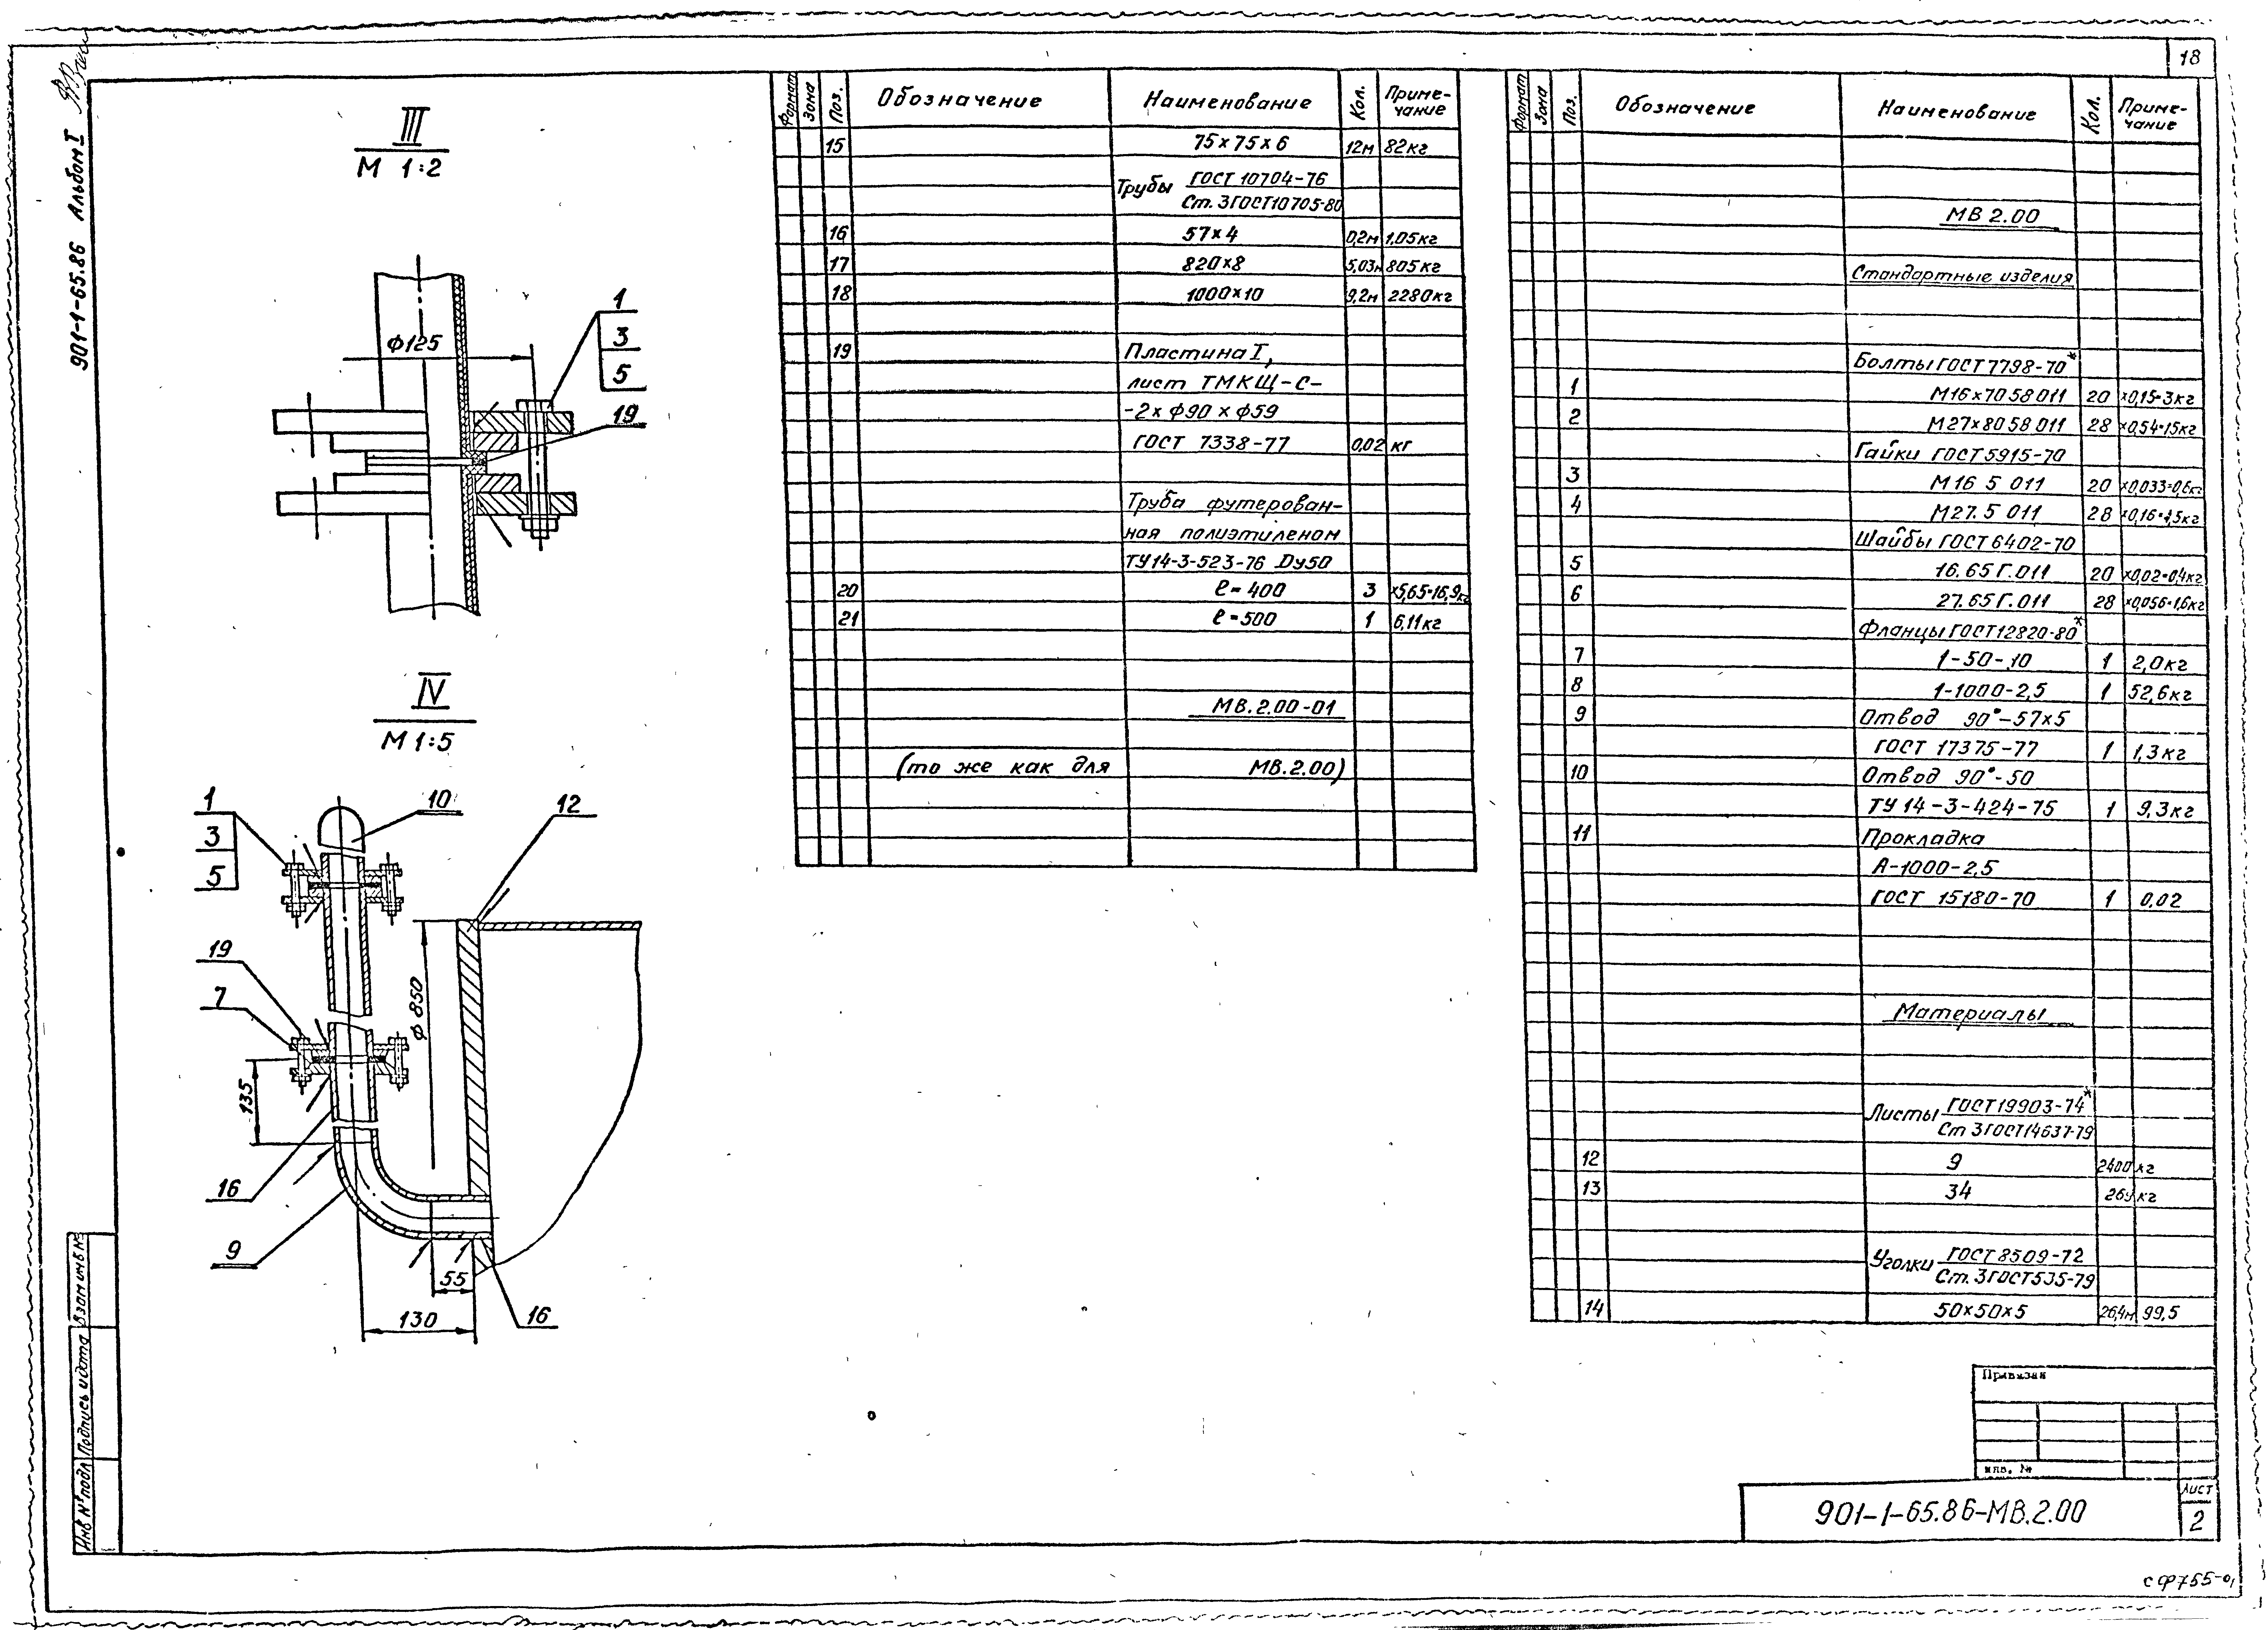 18
901-1-65.86 Альбом I
III
М 1:2
ф125
1
3
5
19
IV
М 1:5
1
3
5
10
12
19
7
ф 850
135
16
9
55
130
16
Формат Зона Поз. Обозначение Наименование Кол. Приме-
чание
15 75×75×6 12м 82кг
Трубы ГОСТ 10704-76
Ст. 3 ГОСТ 10705-80
16 57×4 0,2м 1,05кг
17 820×8 5,03м 805кг
18 1000×10 9,2м 2280кг
19 Пластина I,
лист ТМКЩ-С-
-2×ф90×ф59
ГОСТ 7338-77 0,02 кг
Труба футерован-
ная полиэтиленом
ТУ14-3-523-76 Dу50
20 ℓ=400 3 ×5,65=16,9кг
21 ℓ=500 1 6,11кг
МВ.2.00-01
(то же как для МВ.2.00)
Формат Зона Поз. Обозначение Наименование Кол. Приме-
чание
МВ 2.00
Стандартные изделия
Болты ГОСТ 7798-70*
1 М16×70 58 011 20 ×0,15=3кг
2 М27×80 58 011 28 ×0,54=15кг
Гайки ГОСТ 5915-70
3 М16 5 011 20 ×0,033=0,6кг
4 М27. 5 011 28 ×0,16=4,5кг
Шайбы ГОСТ 6402-70
5 16. 65 Г. 011 20 ×0,02=0,4кг
6 27. 65 Г. 011 28 ×0,056=1,6кг
Фланцы ГОСТ 12820-80*
7 1-50-10 1 2,0кг
8 1-1000-2,5 1 52,6кг
9 Отвод 90°-57×5
ГОСТ 17375-77 1 1,3кг
10 Отвод 90°-50
ТУ 14-3-424-75 1 9,3кг
11 Прокладка
А-1000-2,5
ГОСТ 15180-70 1 0,02
Материалы
Листы ГОСТ 19903-74*
Ст 3 ГОСТ 14637-79
12 9 2400 кг
13 34 кг
Уголки ГОСТ 8509-72
Ст. 3 ГОСТ 535-79
14 50×50×5 26,4м 99,5
Привязан
инв. №
901-1-65.86-МВ.2.00
Лист
2
Инв. № подл Подпись и дата Взам инв №
сф755-01